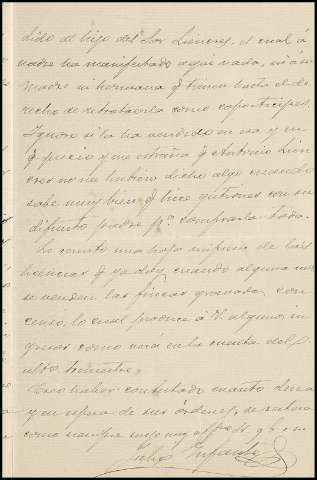 dido al hijo del Sor Lieneres, el cual á
nadie ha manifestado aqui nada, ni á su
madre ni hermana q tienen hasta el de
recho de retrotraerla como copartícipes.
Ignoro si la ha vendido en esa y en
q precio y me extraña q Antonio Lien
eres no me hubiera dicho algo cuando
sabe muy bien q hice gestiones con su
difunto padre pª comprarla toda.
Le remito una hoja impresa de las
licencias q yo doy cuando alguna vez
se venden las fincas gravadas con
censo, lo cual produce á V. algunos in
gresos como verá en la cuenta del
ulto trimestre.
Creo haber contestado cuanto desea
y en espera de sus órdenes, se reitera
como siempre suyo muy affmo S. q. b. s. m.
Infante